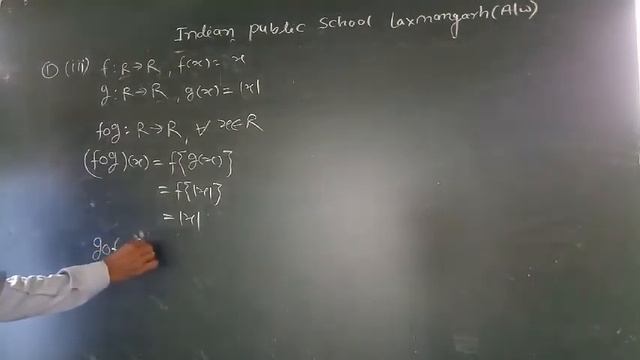 Indian public school Laxmangarh(Alw)
① (iii) f: R→R, f(x) = x
g: R→R, g(x) = |x|
fog: R→R, ∀ x∈R
(fog)(x) = f{g(x)}
= f{|x|}
= |x|
gof